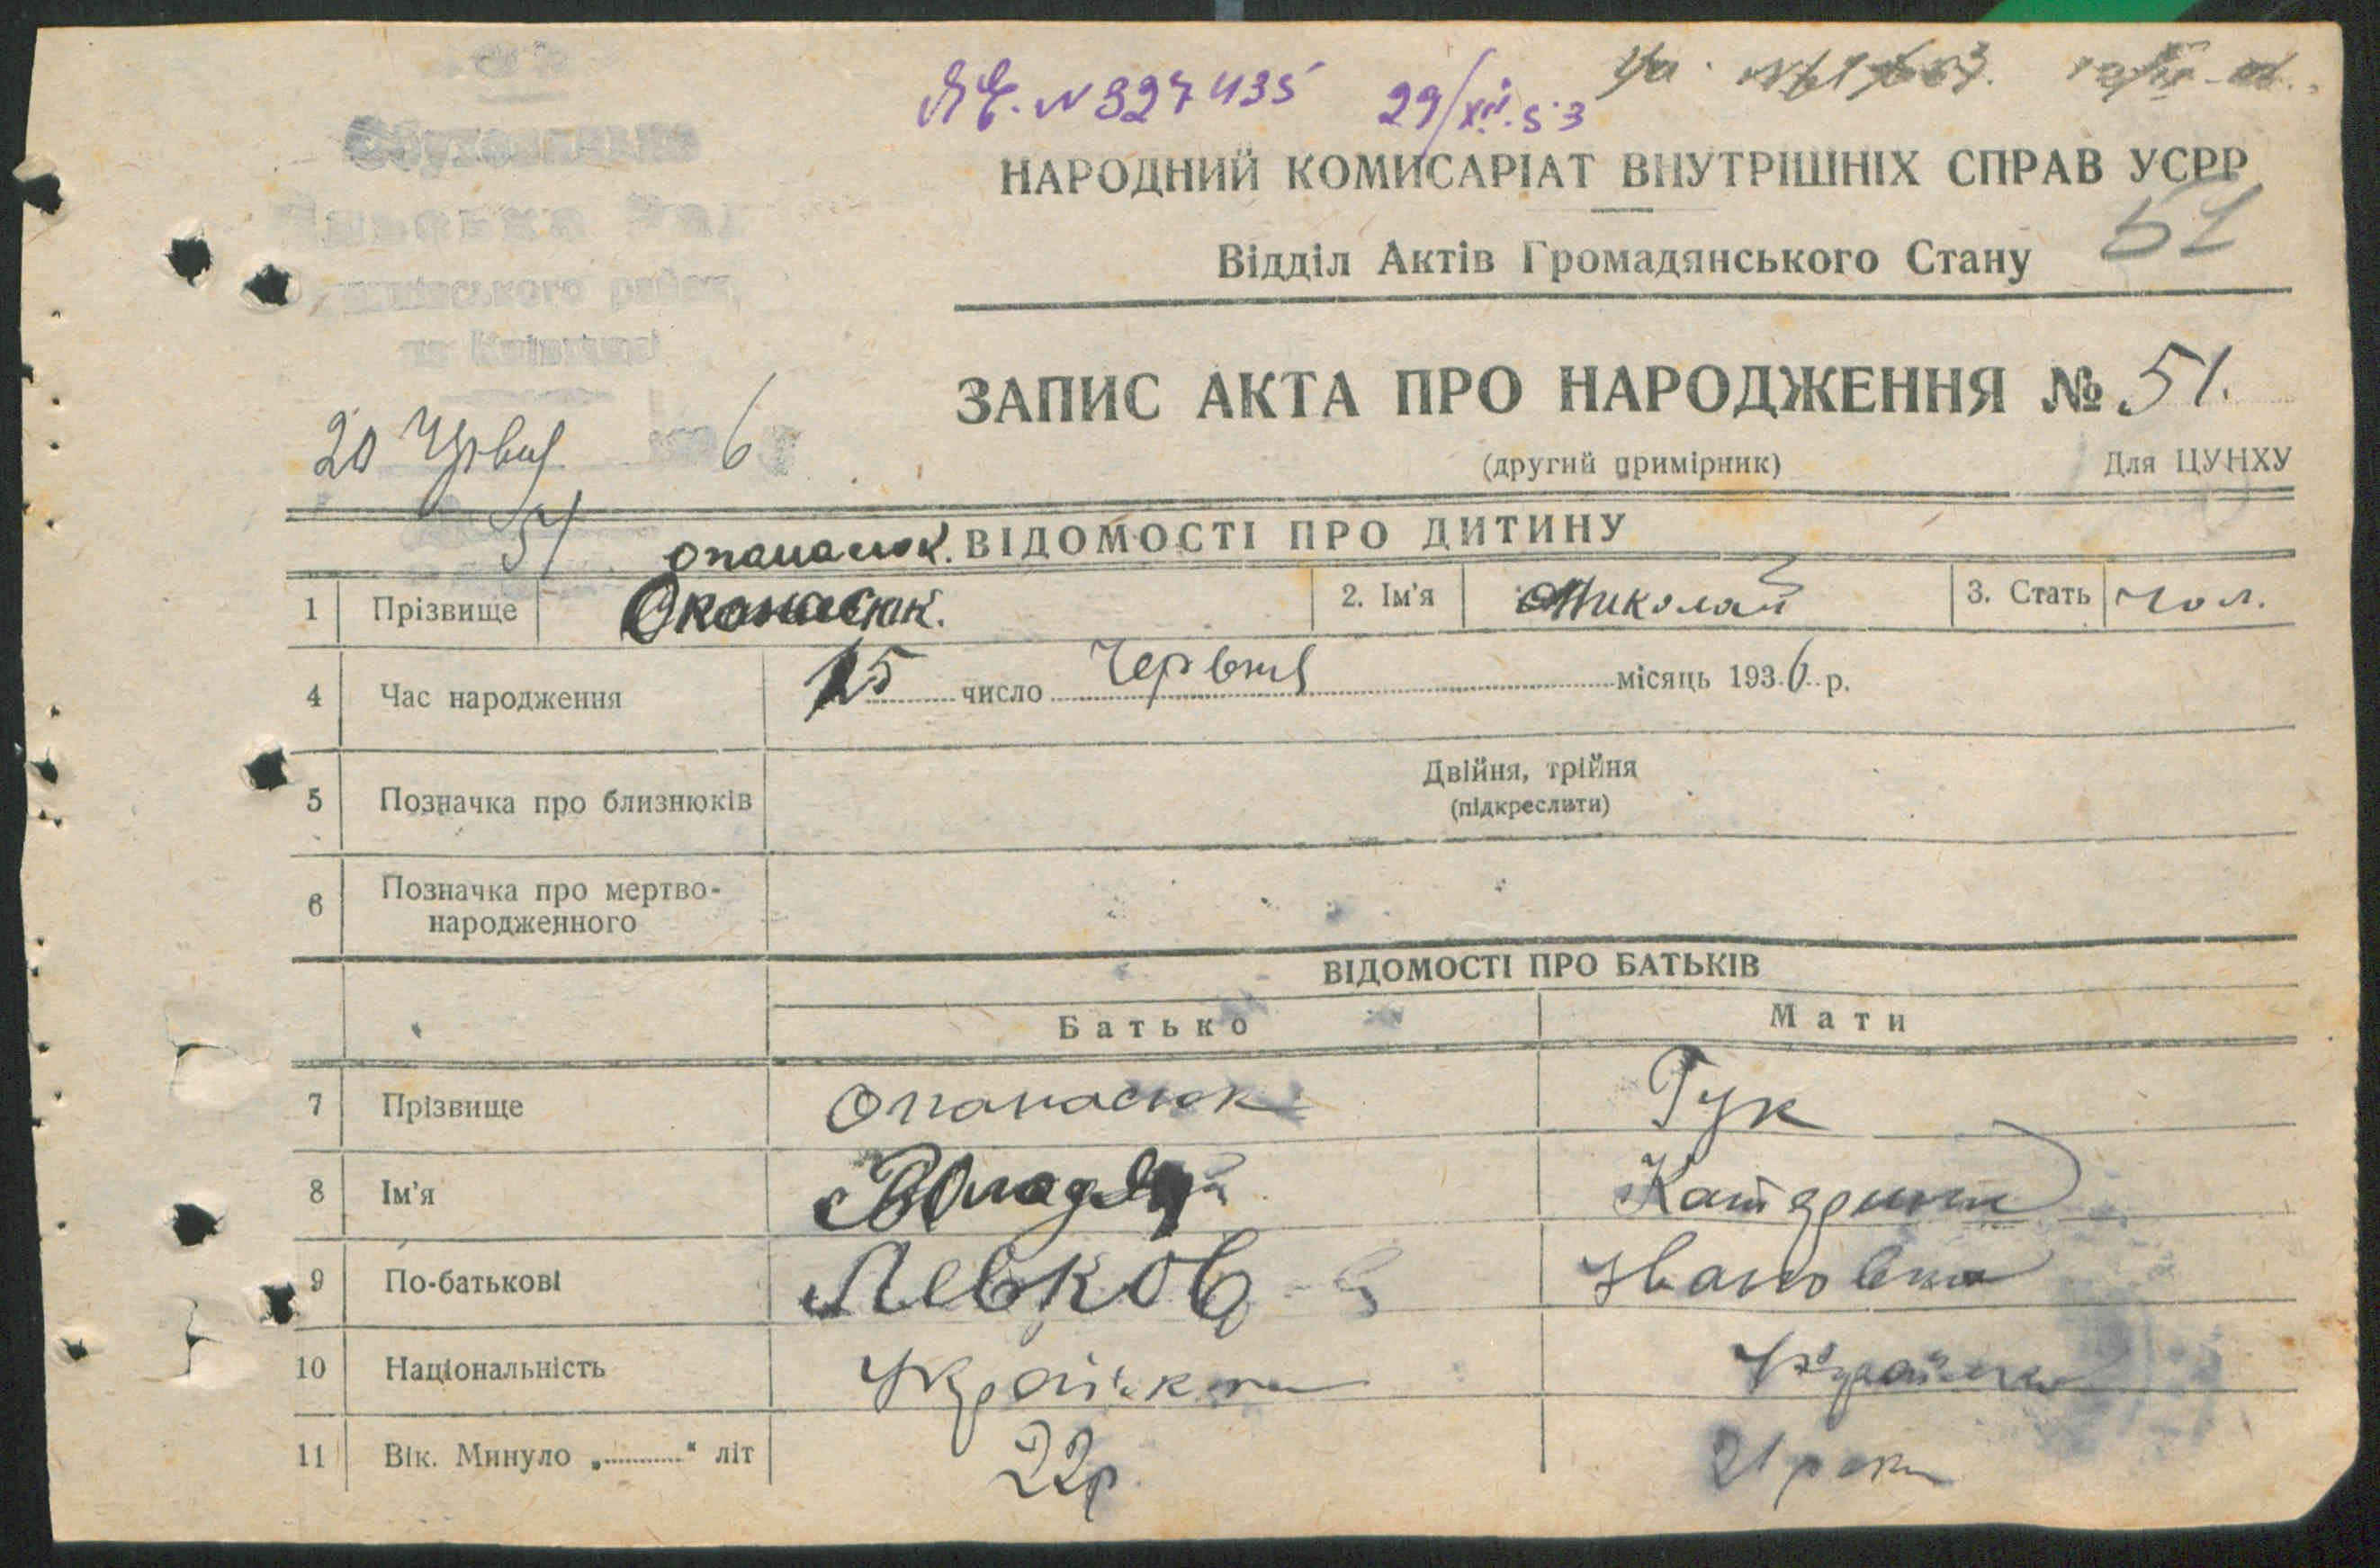 ЯЄ. N 327435 29/XII.53
НАРОДНИЙ КОМИСАРІАТ ВНУТРІШНІХ СПРАВ УСРР
Відділ Актів Громадянського Стану
51
ЗАПИС АКТА ПРО НАРОДЖЕННЯ № 51.
(другий примірник) Для ЦУНХУ
20 6
51
опанасюк. ВІДОМОСТІ ПРО ДИТИНУ
1 Прізвище 2. Ім'я Николай 3. Стать чол.
4 Час народження 15 число Червня місяць 1936 р.
5 Позначка про близнюків Двійня, трійня
(підкреслити)
6 Позначка про мертво-
народженного
ВІДОМОСТІ ПРО БАТЬКІВ
Батько Мати
7 Прізвище Опанасюк Гук
8 Ім'я Катерина
9 По-батькові Левков Ивановна
10 Національність
11 Вік. Минуло „......“ літ 22р 21 роки